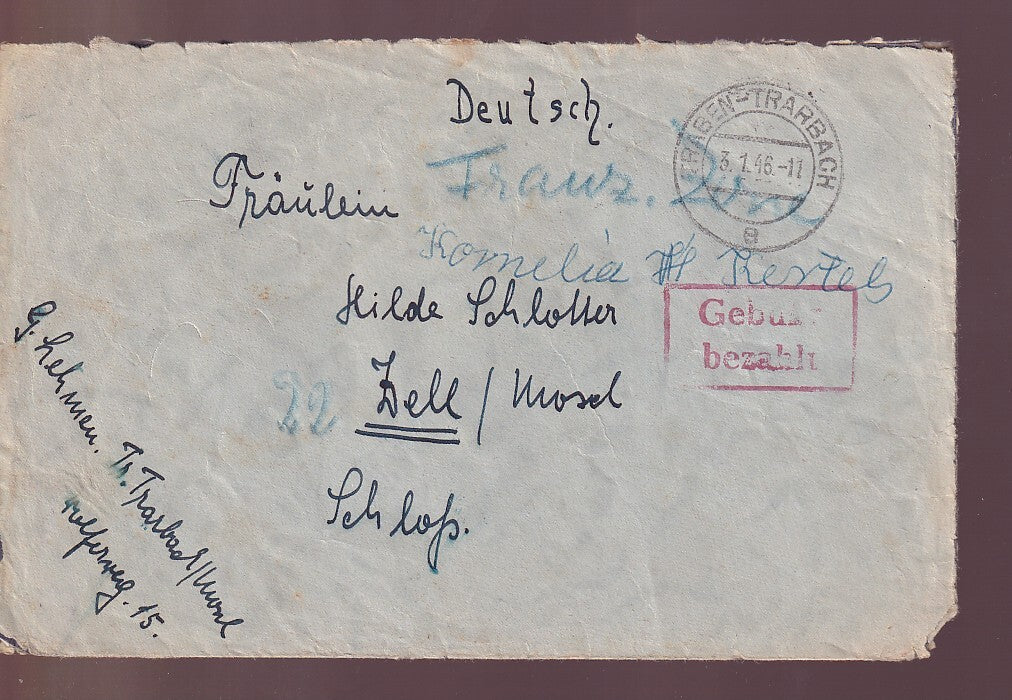 Deutsch.
TRABEN-TRARBACH
3.1.46.-17
a
Fräulein
Franz.
Kornelia Kertels
Hilde Schlotter
Gebühr
bezahlt
22 Zell / Mosel
Schloß.
G. Lehmen.
Tr. Trarbach/Mosel
15.